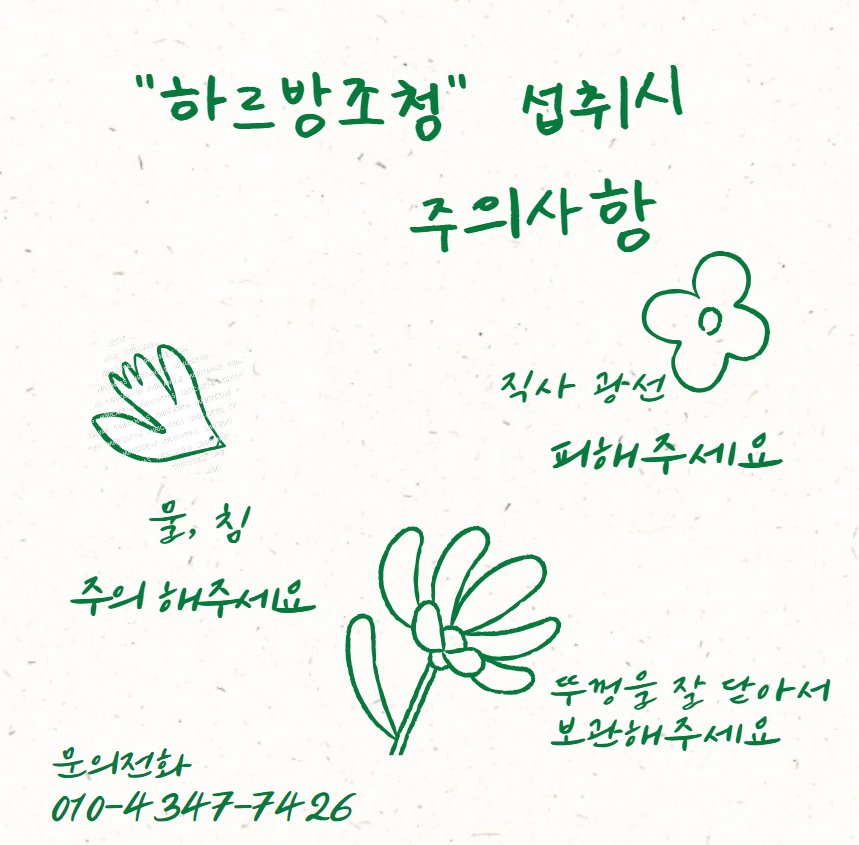 "하르방조청" 섭취시
주의사항
직사 광선
피해주세요
물, 침
주의 해주세요
뚜껑을 잘 닫아서
보관해주세요
문의전화
010-4347-7426